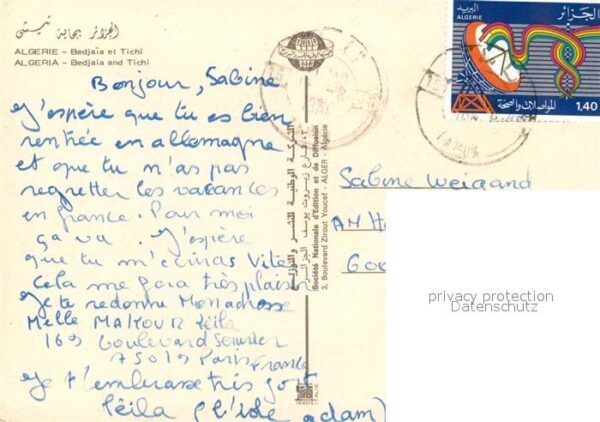 الجزائر بجاية تيشي
ALGERIE - Bedjaïa et Tichi
ALGERIA - Bedjaia and Tichi
Bonjour, Sabine
J'espère que tu es bien
rentrée en allemagne
et que tu m'as pas
regretter les vacances
en france. Pour moi
ça va. J'espère
que tu m'écriras Vite
Cela me fera très plaisir
Je te redonne Mon adresse
Melle MAKOUR Leïla
169 boulevard Serurier
75019 Paris France
Je t'embrasse très fort
Lëila (l'isle adam)
الشركة الوطنية للنشر والتوزيع
٣، شارع زيروت يوسف الجزائر
Société Nationale d'Edition et de Diffusion
3, Boulevard Zirout Youcef - ALGER - Algérie
ITALIE
البريد
ALGERIE
الجزائر
المواصلات والصحة
1,40
Sabine Weigand
AM H
Go
privacy protection
Datenschutz